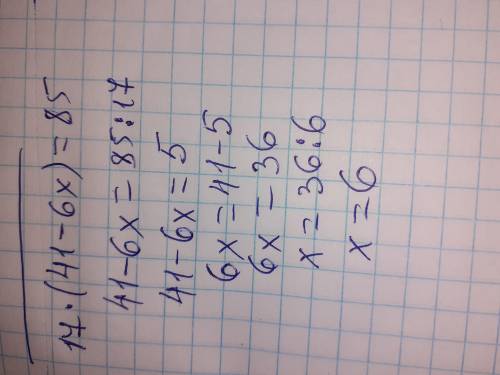 17·(41-6x)=85
41-6x=85:17
41-6x=5
6x=41-5
6x=36
x=36:6
x=6